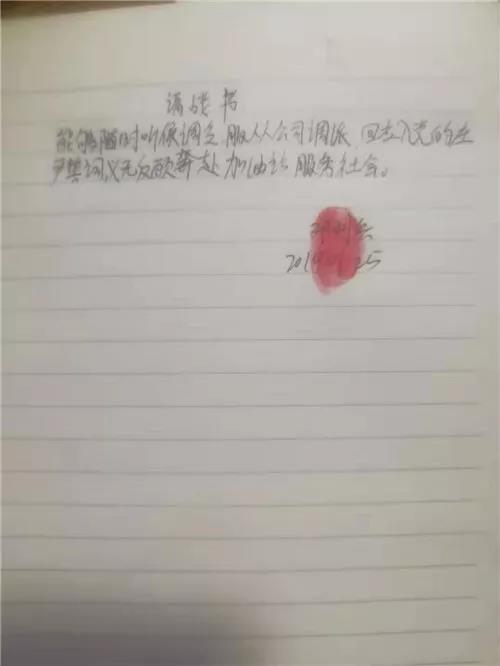 请战书
能够随时听候调令,服从公司调派,回去入党的庄
严誓词,义无反顾奔赴加油站服务社会。
25